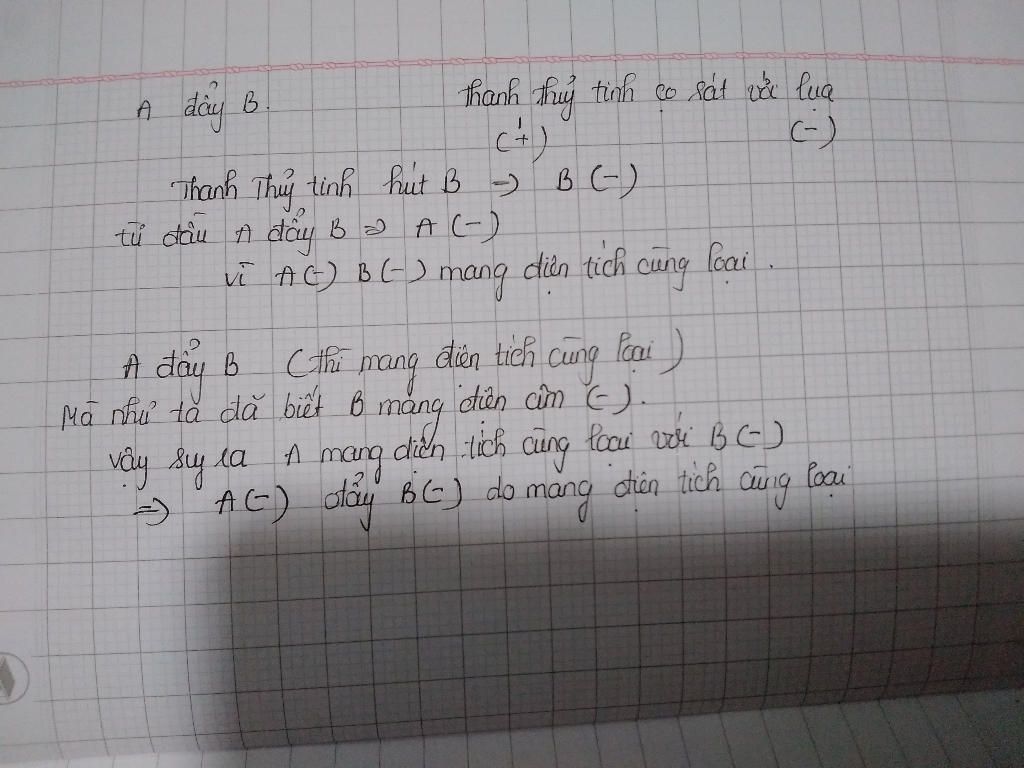 A đẩy B. Thanh thuỷ tinh cọ sát với lụa
(+) (-)
Thanh Thuỷ tinh hút B => B (-)
từ đầu A đẩy B => A (-)
vì A(-) B(-) mang điện tích cùng loại.
A đẩy B (thì mang điện tích cùng loại)
Mà như ta đã biết B mang điện âm (-).
vậy suy ra A mang điện tích cùng loại với B(-)
=> A(-) đẩy B(-) do mang điện tích cùng loại